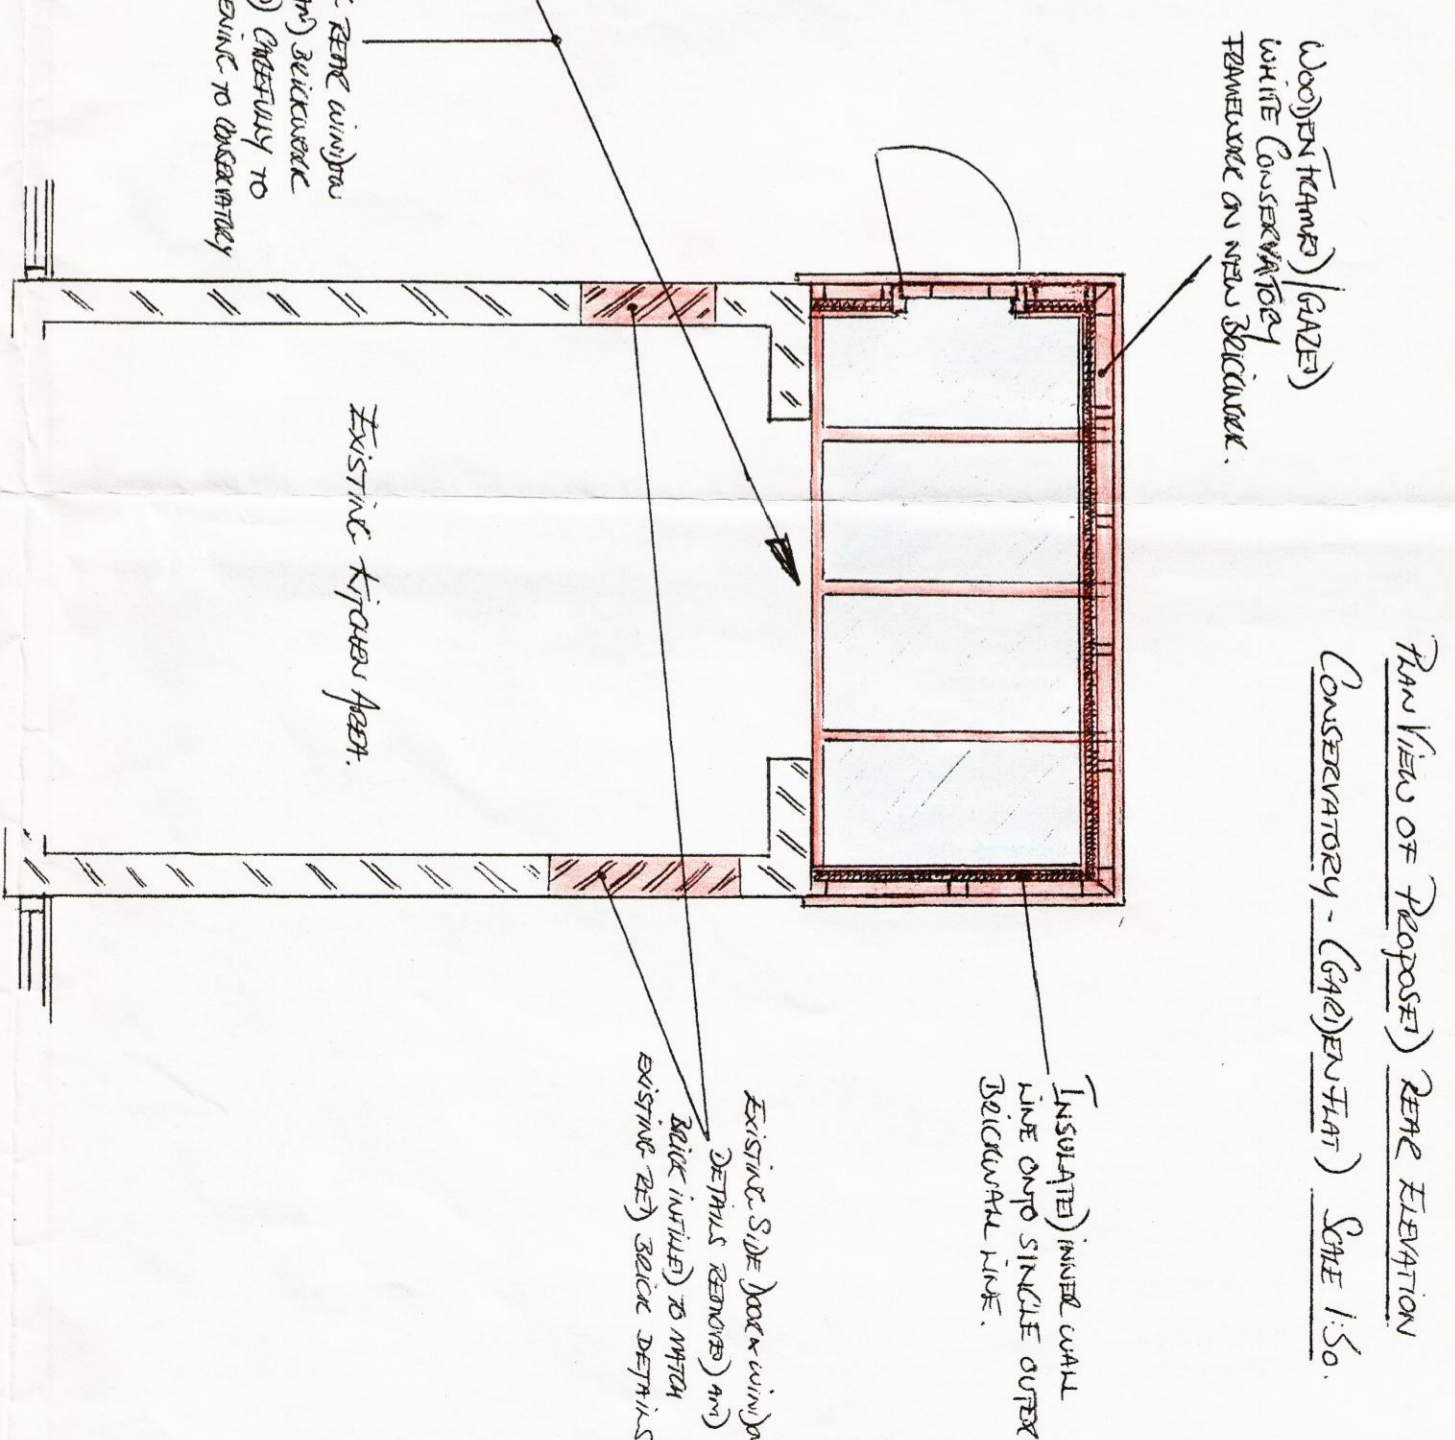 PLAN VIEW OF PROPOSED REAR ELEVATION
CONSERVATORY - (GARDEN FLAT) SCALE 1:50.
WOODEN FRAMED/GLAZED
WHITE CONSERVATORY
FRAMEWORK ON NEW BRICKWORK.
INSULATED INNER WALL
LINE ONTO SINGLE OUTER
BRICKWALL LINE.
EXISTING SIDE DOOR & WINDOW
DETAILS REMOVED AND
BRICK INFILLED TO MATCH
EXISTING RED BRICK DETAILS
EXISTING KITCHEN AREA.
REAR WINDOW
BRICKWORK
CAREFULLY TO
TO CONSERVATORY